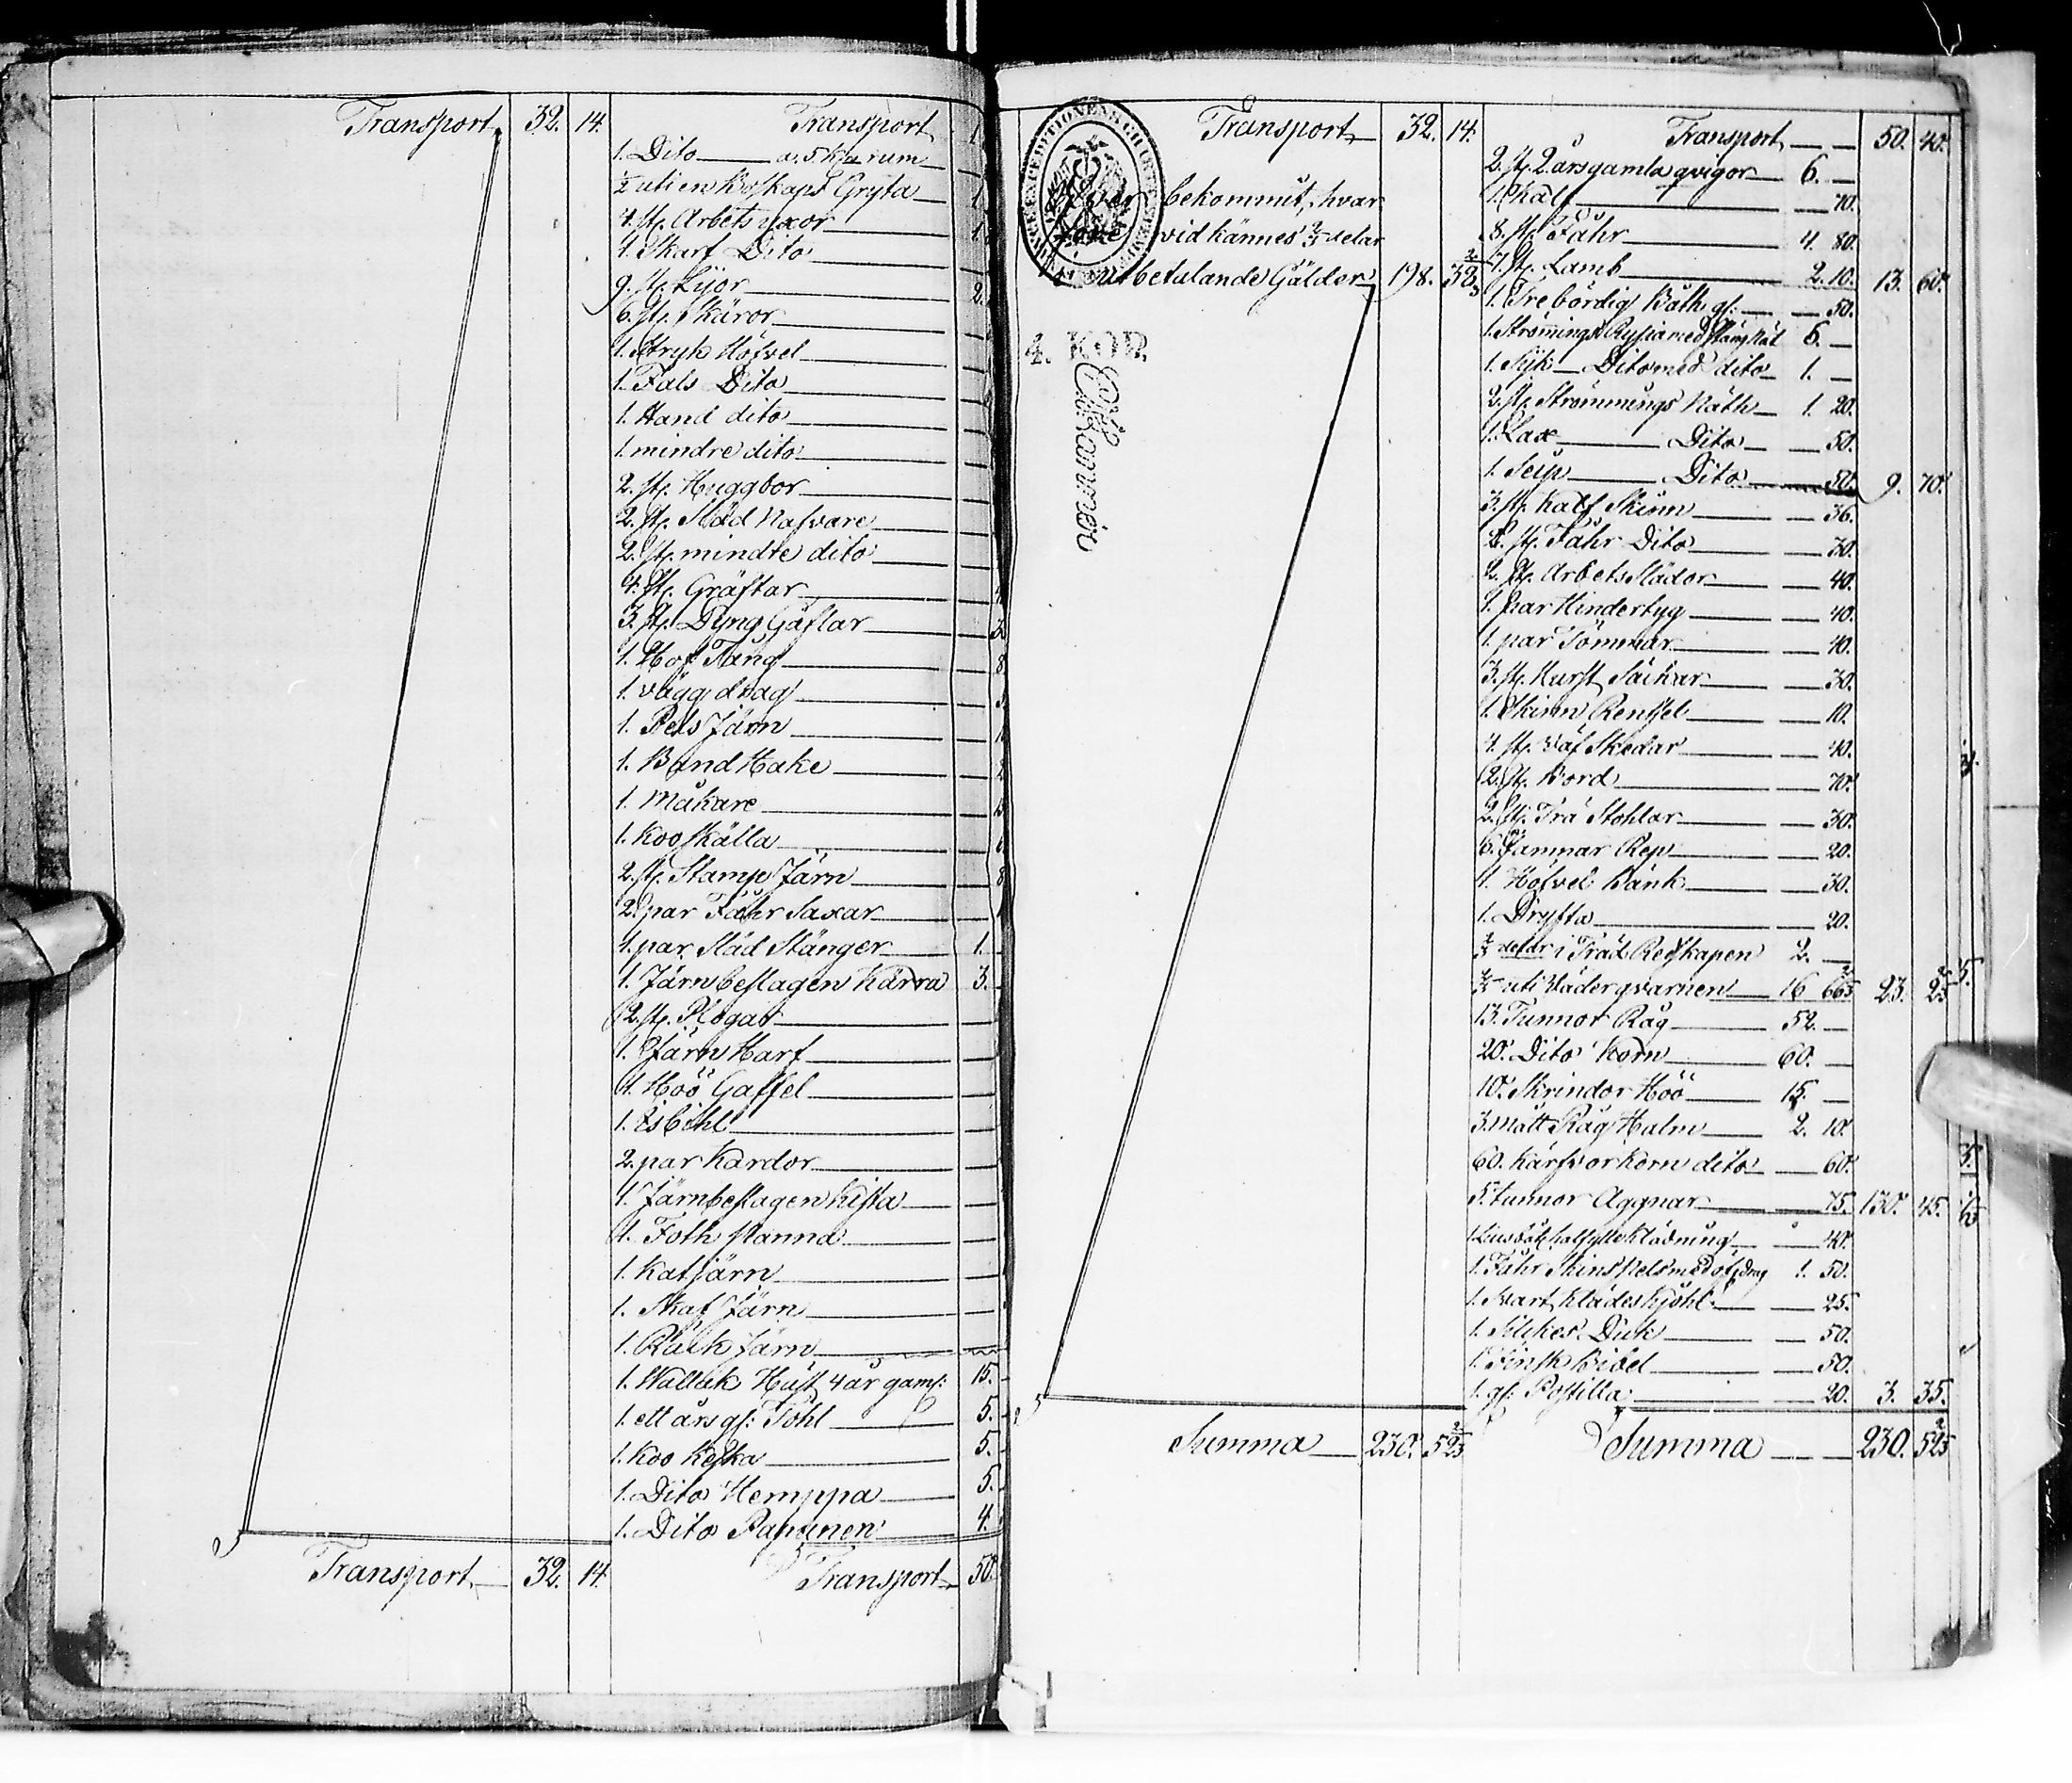 Transport 32. 14. Transport
1. Dito a. 5. Kanrum
½ uti en Boskaps Gryta
4. st. Arbets yxor
1. Skarf Dito
9. st. Lijor
6. st. Skäror
1. Stryk Höfvel
1. Fals Dito
1. Hand dito
1. mindre dito
2. st. Huggbor
2. st. Släd Nafvare
2. st. mindre dito
4. st. Gräftar
3. st. Dyng Gaflar
1. Hof Tång
1. vägg drag
1. Pels Järn
1. Band Hake
1. Måkare
1. Koo Skälla
2. st. Stamp Järn
2. par Fåhr Saxar
1. par Släd Stänger 1.
1. Järnbeslagen Kärra 3.
2. st. Plogar
1. Järn Harf
1. Höö Gaffel
1. Isbihl
2. par Kardor
1. Järnbeslagen Kista
1. Foth Kanna
1. Katjärn
1. Skaf Järn
1. Råck Järn
1. Wallak Häst 4 år gaml: 15.
1. ett års gl: Fohl 5.
1. Koo Keska 5.
1. Dito Hemppa 5.
1. Dito Papunen 4.
Transport 32. 14. Transport 50.
Transport 32. 14. Transport 50. 40.
bekommit, hvar
vidkännes ⅔ delar
utbetalande Gälder 198. 38⅔
4. KOP.
2. st. 2. årsgamla qvigor 6.
1. Kalf 70.
8. st. Fåhr 4. 80.
7. st. Lamb 2. 10. 13. 60.
1. Trebördig Båth gl: 50.
1. Strömmings Ryssia med Stång Nät 6.
1. Sijk Dito med dito 1.
3. st. Strömmings Näth 1. 20.
1. Lax Dito 50.
1. Seip Dito 50. 9. 70.
3. st. Kalf Skinn 36.
2. st. Fåhr Dito 30.
2. st. Arbets Slädor 40.
1. par Hindertyg 40.
1. par Tömmar 40.
3. st. Hurst Säckar 30.
1. Skinn Rentsel 10.
4. st. Väf Skedar 40.
2. st. Bord 70.
2. st. Trä Stohlar 30.
6. Famnar Rep 20.
1. Höfvel Bänk 30.
1. Dryfta 20.
⅔ delar i Träd Redskapen 2.
⅔ uti Vädergvarnen 16 66⅔ 23. 2⅔
13. Tunnor Råg 52.
20. Dito Korn 60.
10. Skrindor Höö 15.
3. mått Råg Halm 2. 10.
60. Kärfvor Korn dito 60.
5. tunnor Aggnar 75. 130. 45.
halfylle Klädning 40.
1. Fåhr Skins Pels med öfdrag 1. 50.
1. Svart Klädes Kjohl 25.
1. Silkes Duk 50.
1. Finsk Bibel 50.
1. gl: Postilla 20. 3. 35.
Summa 230. 52⅔ Summa 230. 52⅔